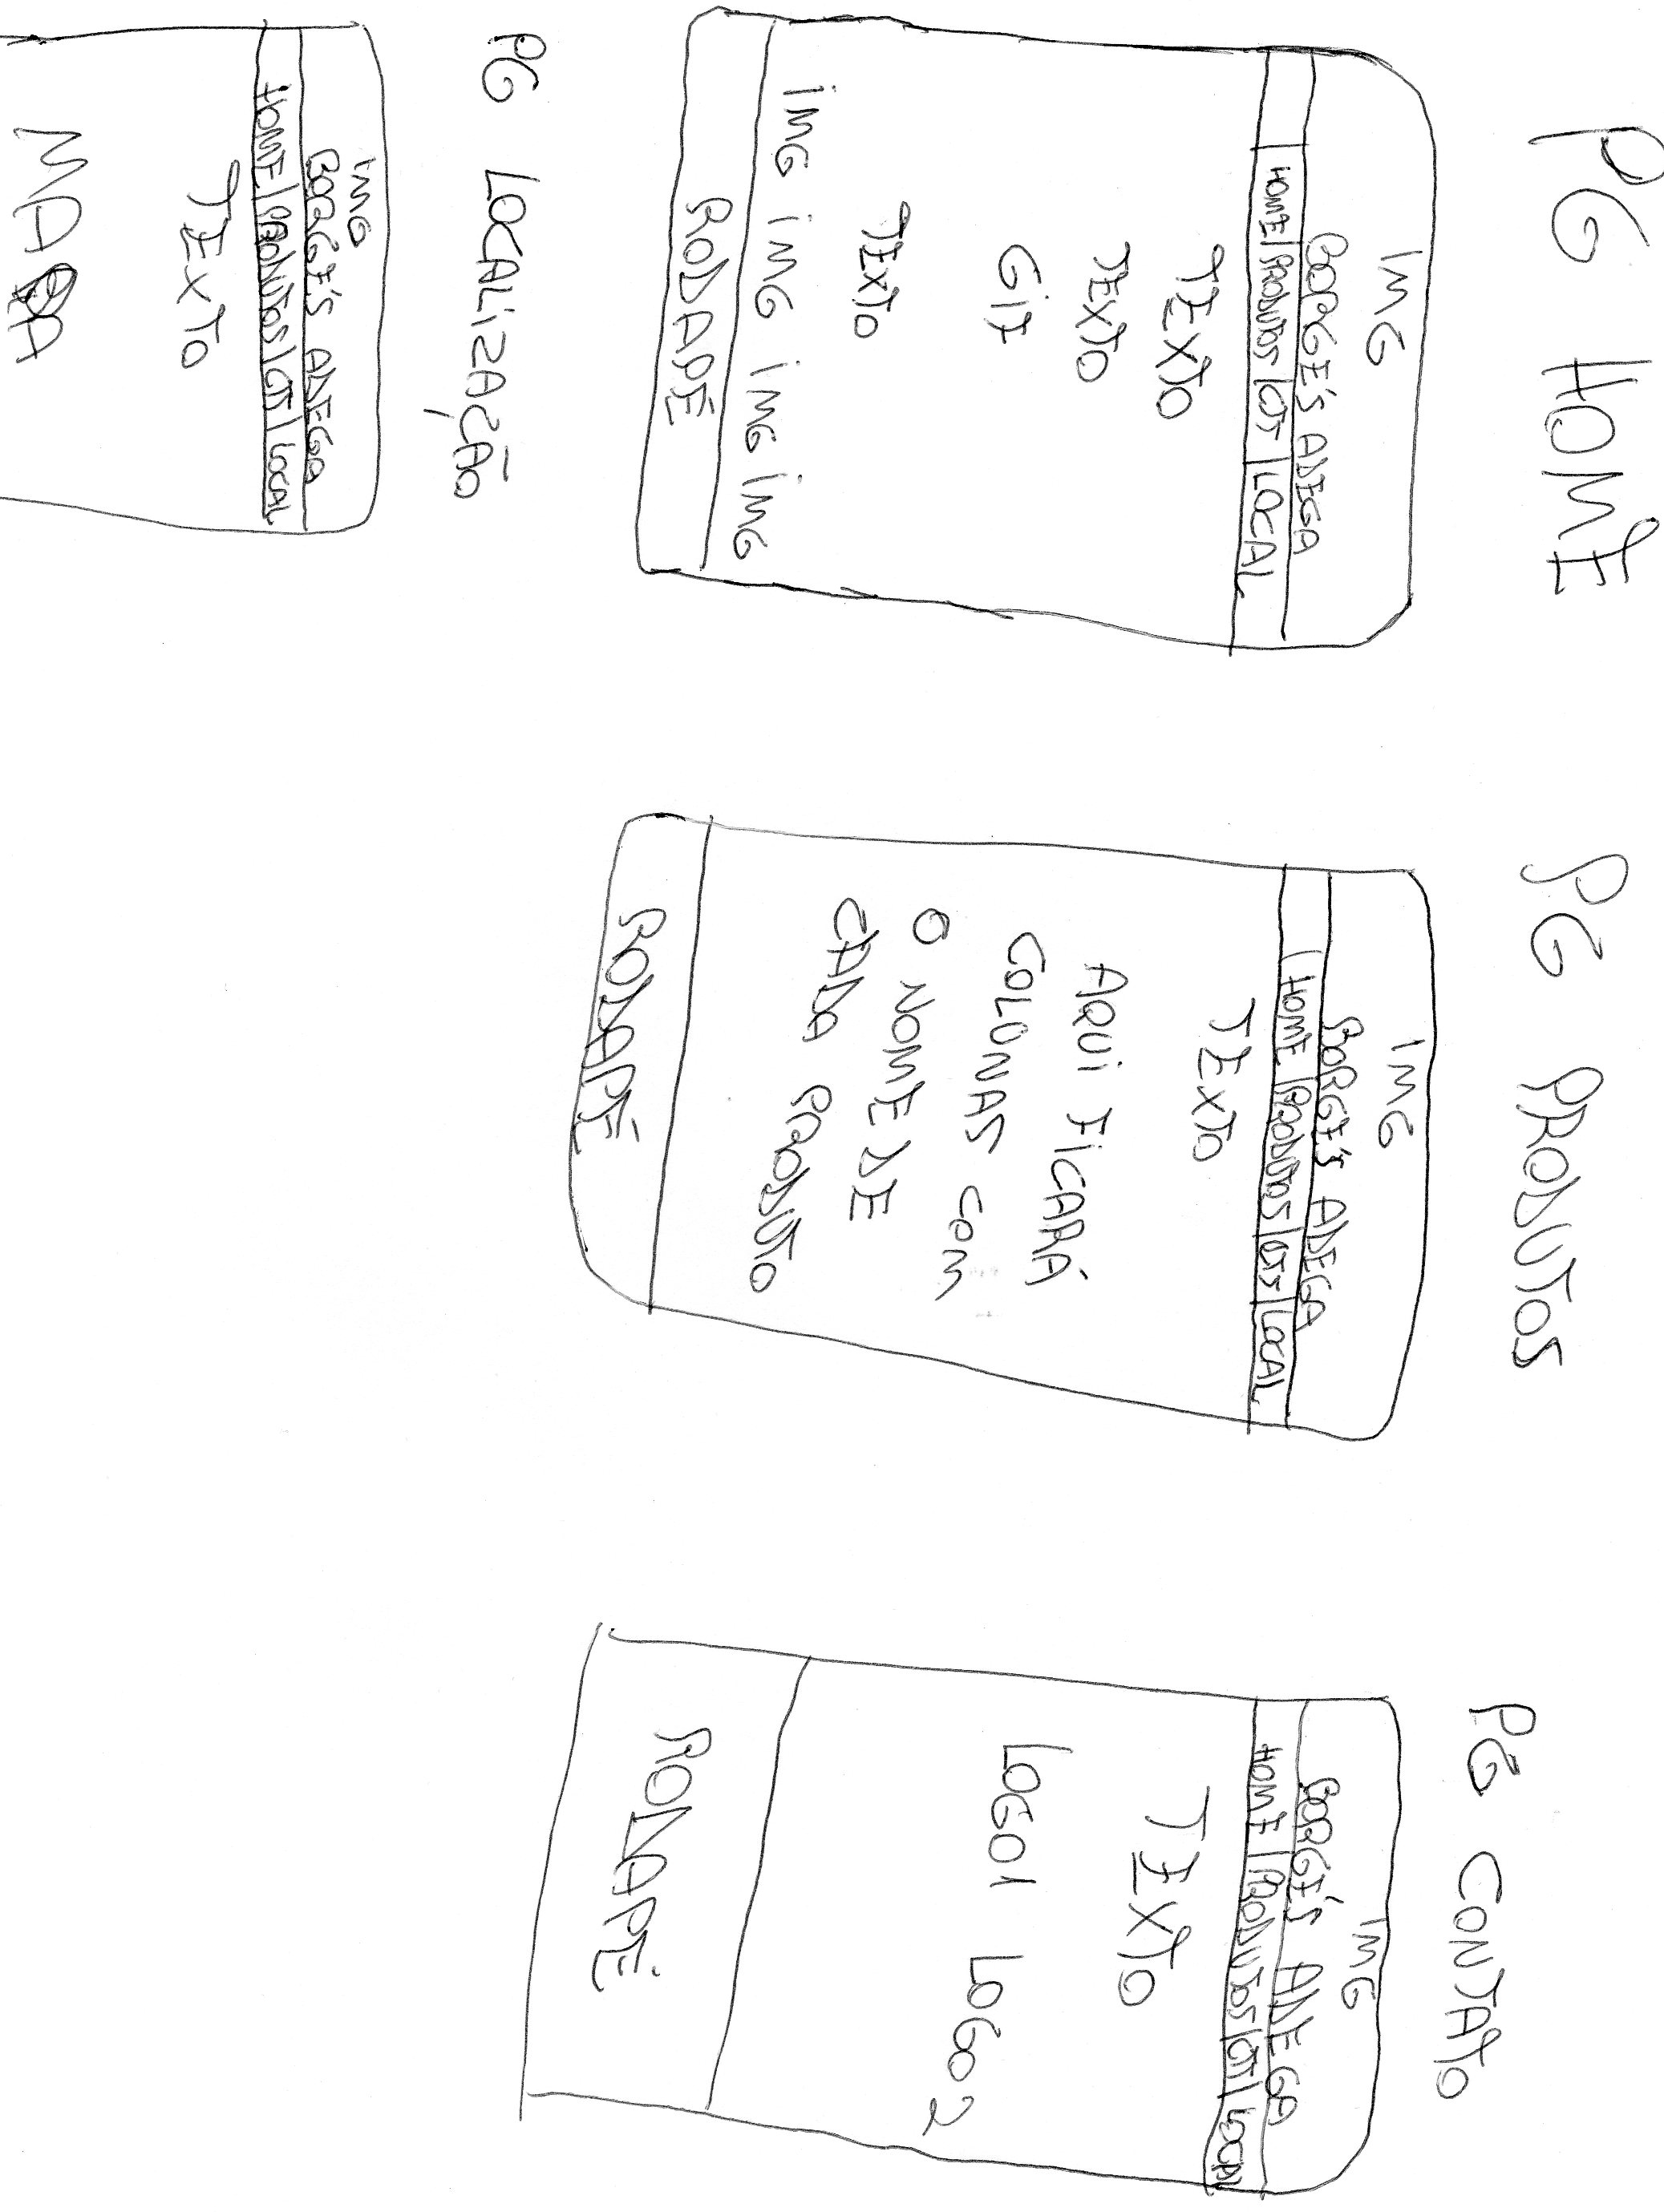 PG HOME
IMG
BORGE'S ADEGA
HOME | PRODUTOS | CTT | LOCAL
TEXTO
TEXTO
GIF
TEXTO
IMG IMG IMG IMG
RODAPÉ
PG PRODUTOS
IMG
BORGE'S ADEGA
HOME | PRODUTOS | CTT | LOCAL
TEXTO
AQUI FICARÁ
COLUNAS COM
O NOME DE
CADA PRODUTO
RODAPÉ
PG CONTATO
IMG
BORGE'S ADEGA
HOME | PRODUTOS | CTT | LOCAL
TEXTO
LOGO1 LOGO2
RODAPÉ
PG LOCALIZAÇÃO
IMG
BORGE'S ADEGA
HOME | PRODUTOS | CTT | LOCAL
TEXTO
MAPA